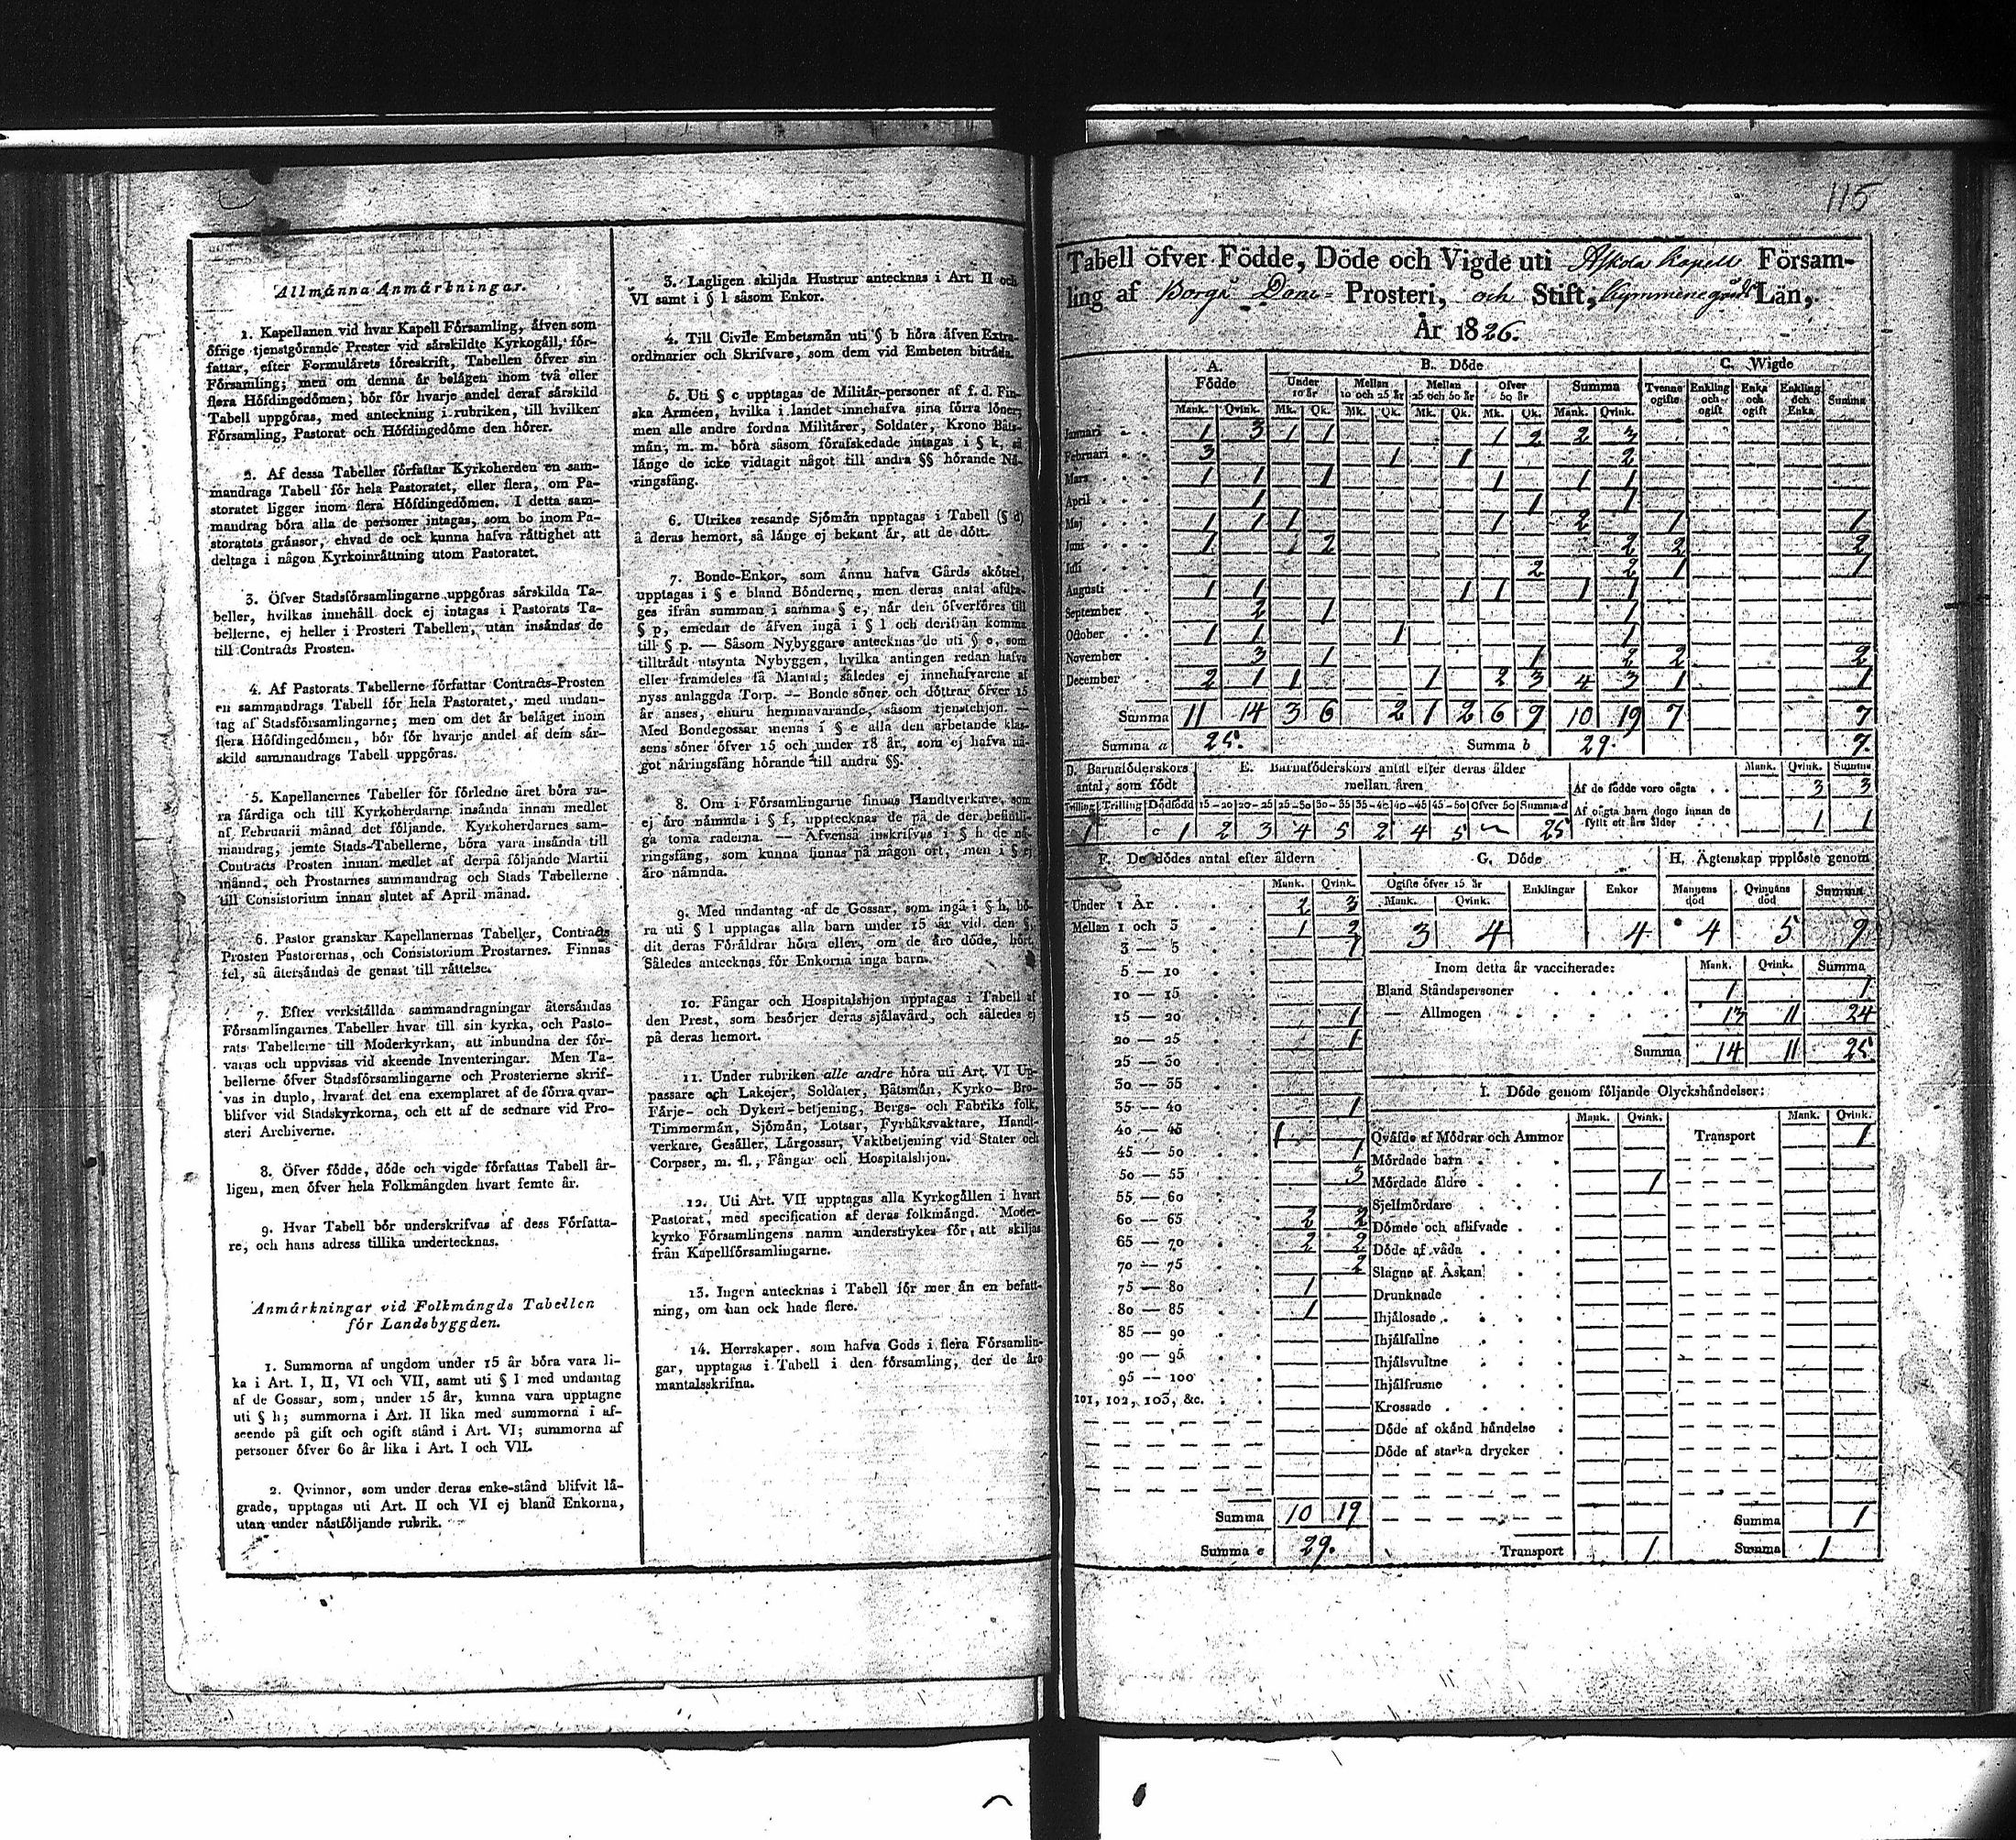 Allmånna Anmårkningar.
1. Kapellanen vid hvar Kapell Församling, åfven som
öfrige tjenstgörande Prester vid sårskildte Kyrkogåll, för-
fattar, efter Formulårets föreskrift, Tabellen öfver sin
Församling; men om denna år belågen inom två eller
flera Höfdingedömen, bör för hvarje andel deraf sårskild
Tabell uppgöras, med anteckning i rubriken, till hvilken
Församling, Pastorat och Höfdingedöme den hörer.
2. Af dessa Tabeller författar Kyrkoherden en sam-
mandrags Tabell för hela Pastoratet, eller flera, om Pa-
storatet ligger inom flera Höfdingedömen. I detta sam-
mandrag böra alla de personer intagas, som bo inom Pa-
storatets grånsor, ehvad de ock kunna hafva råttighet att
deltaga i någon Kyrkoinråttning utom Pastoratet.
3. Öfver Stadsförsamlingarne uppgöras sårskilda Ta-
beller, hvilkas innehåll dock ej intages i Pastorats Ta-
bellerne, ej heller i Prosteri Tabellen, utan insåndas de
till Contracts Prosten.
4. Af Pastorats Tabellerne författar Contracts-Prosten
en sammandrags Tabell för hela Pastoratet, med undan-
tag af Stadsförsamlingarne; men om det år belåget inom
flera Höfdingedömen, bör för hvarje andel af dem sår-
skild sammandrags Tabell uppgöras.
5. Kapellanernes Tabeller för förledne året böra va-
ra fårdiga och till Kyrkoherdarne insånda innan medlet
af Februarii månad det följande. Kyrkoherdarnes sam-
mandrag, jemte Stads-Tabellerne, böra vara insånda till
Contracts Prosten innan medlet af derpå följande Martii
månad, och Prostarnes sammandrag och Stads Tabellerne
till Consistorium innan slutet af April månad.
6. Pastor granskar Kapellanernas Tabeller, Contracts
Prosten Pastorernas, och Consistorium Prostarnes. Finnas
fel, så återsåndas de genast till råttelse.
7. Efter verkstållda sammandragningar återsåndas
Församlingarnes Tabeller hvar till sin kyrka, och Pasto-
rats Tabellerne till Moderkyrkan, att inbundna der för-
varas och uppvisas vid skeende Inventeringar. Men Ta-
bellerne öfver Stadsförsamlingarne och Prosterierne skrif-
vas in duplo, hvaraf det ena exemplaret af de förra qvar-
blifver vid Stadskyrkorna, och ett af de sednare vid Pro-
steri Archiverne.
8. Öfver födde, döde och vigde författas Tabell år-
ligen, men öfver hela Folkmångden hvart femte år.
9. Hvar Tabell bör underskrifvas af dess Författa-
re, och hans adress tillika undertecknas.
Anmårkningar vid Folkmångds Tabellen
för Landsbyggden.
1. Summorna af ungdom under 15 år böra vara li-
ka i Art. I, II, VI och VII, samt uti § l med undantag
af de Gossar, som, under 15 år, kunna vara upptagne
uti § h; summorna i Art. II lika med summorna i af-
seende på gift och ogift stånd i Art. VI; summorna af
personer öfver 60 år lika i Art. I och VII.
2. Qvinnor, som under deras enke-stånd blifvit lå-
grade, upptagas uti Art. II och VI ej bland Enkorna,
utan under nåstföljande rubrik.
3. Lagligen skiljda Hustrur antecknas i Art. II och
VI samt i § l såsom Enkor.
4. Till Civile Embetsmån uti § b höra åfven Extra-
ordinarier och Skrifvare, som dem vid Embeten bitråda.
5. Uti § c upptagas de Militår-personer af f. d. Fin-
ska Arméen, hvilka i landet innehafva sina förra löner;
men alle andre fordna Militårer, Soldater, Krono Båts-
mån, m. m. böra såsom förafskedade intagas i § k, så
långe de icke vidtagit något till andra §§ hörande Nå-
ringsfång.
6. Utrikes resande Sjömån upptagas i Tabell (§ d)
å deras hemort, så långe ej bekant år, att de dött.
7. Bonde-Enkor, som ånnu hafva Gårds skötsel,
upptagas i § e bland Bönderne, men deras antal afdra-
ges ifrån summan i samma § e, når den öfverföres till
§ p, emedan de åfven ingå i § l och derifrån komma
till § p. — Såsom Nybyggare antecknas de uti § e, som
tilltrådt utsynta Nybyggen, hvilka antingen redan hafva
eller framdeles få Mantal; således ej innehafvarene af
nyss anlaggda Torp. — Bonde söner och döttrar öfver 15
år anses, ehuru hemmavarande, såsom tjenstehjon. —
Med Bondegossar menas i § e alla den arbetande klas-
sens söner öfver 15 och under 18 år, som ej hafva nå-
got nåringsfång hörande till andra §§.
8. Om i Församlingarne finnas Handtverkare, som
ej åro nåmnda i § f, upptecknas de på de der befintli-
ga toma raderna. — Åfvenså inskrifvas i § h de nå-
ringsfång, som kunna finnas på någon ort, men i § ej
åro nåmnda.
9. Med undantag af de Gossar, som ingå i § h, bö-
ra uti § l upptagas alla barn under 15 år vid den §,
dit deras Föråldrar höra eller, om de åro döde, hört.
Således antecknas för Enkorna inga barn.
10. Fångar och Hospitalshjon upptagas i Tabell af
den Prest, som besörjer deras sjålavård, och således ej
på deras hemort.
11. Under rubriken alle andre höra uti Art. VI Up-
passare och Lakejer, Soldater, Båtsmån, Kyrko- Bro-
Fårje- och Dykeri-betjening, Bergs- och Fabriks folk,
Timmermån, Sjömån, Lotsar, Fyrbåksvaktare, Handt-
verkare, Gesåller, Lårgossar, Vaktbetjening vid Stater och
Corpser, m. fl., Fångar och Hospitalshjon.
12. Uti Art. VII upptagas alla Kyrkogållen i hvart
Pastorat, med specification af deras folkmångd. Moder-
kyrko Församlingens namn understrykes för att skiljas
från Kapellförsamlingarne.
13. Ingen antecknas i Tabell för mer ån en befatt-
ning, om han ock hade flere.
14. Herrskaper, som hafva Gods i flera Församlin-
gar, upptagas i Tabell i den församling, der de åro
mantalsskrifna.
115
Tabell öfver Födde, Döde och Vigde uti Askola Kapell Försam-
ling af Borgå Dom= Prosteri, och Stift, Kymmenegårds Län,
År 1826.
A. Födde B. Döde C. Wigde
Under 10 år Mellan 10 och 25 år Mellan 25 och 50 år Öfver 50 år Summa Tvenne ogifte Enkling och ogift Enka och ogift Enkling och Enka Summa
Mank. Qvink. Mk. Qk. Mk. Qk. Mk. Qk. Mk. Qk. Mank. Qvink.
Januari 1 3 1 1 1 2 2 3
Februari 3 1 1 2
Mars 1 1 1 1 1 1
April 1 1 1
Maj 1 1 1 1 2 1 1
Juni 1 1 2 2 2 2
Juli 2 2 1 1
Augusti 1 1 1 1 1 1
September 2 1 1
October 1 1 1 1
November 3 1 1 2 2 2
December 2 1 1 1 2 3 4 3 1 1
Summa 11 14 3 6 2 1 2 6 9 10 19 7 7
Summa a 25. Summa b 29. 7.
D. Barnaföderskors antal, som födt
E. Barnaföderskors antal efter deras ålder mellan åren
Mank. Qvink. Summa
Af de födde voro oågta 3 3
Af oågta barn dogo innan de fyllt ett års ålder 1 1
Tvilling Trilling Dödfödd 15-20 20-25 25-30 30-35 35-40 40-45 45-50 Öfver 50 Summa d
1 c 1 2 3 4 5 2 4 5 25
F. De dödes antal efter åldern
Mank. Qvink.
Under 1 År 2 3
Mellan 1 och 3 1 2
3 — 5 1
5 — 10
10 — 15
15 — 20 1
20 — 25 1
25 — 30
30 — 35
35 — 40 1
40 — 45 1
45 — 50 1
50 — 55 3
55 — 60
60 — 65 2 2
65 — 70 2 2
70 — 75 2
75 — 80 1
80 — 85 1
85 — 90
90 — 95
95 — 100
101, 102, 103, &c.
Summa 10 19
Summa e 29.
G. Döde
Ogifte öfver 15 år Enklingar Enkor
Mank. Qvink.
3 4 4
H. Ågtenskap upplöste genom
Mannens död Qvinnans död Summa
4 5 9
Inom detta år vaccinerade: Mank. Qvink. Summa
Bland Ståndspersoner 1 1
— Allmogen 13 11 24
Summa 14 11 25
I. Döde genom följande Olyckshåndelser:
Mank. Qvink. Mank. Qvink.
Qvåfde af Mödrar och Ammor Transport 1
Mördade barn
Mördade åldre 1
Sjelfmördare
Dömde och aflifvade
Döde af våda
Slagne af Åskan
Drunknade
Ihjålosade
Ihjålfallne
Ihjålsvultne
Ihjålfrusne
Krossade
Döde af okånd håndelse
Döde af starka drycker
Summa 1
Transport 1 Summa 1